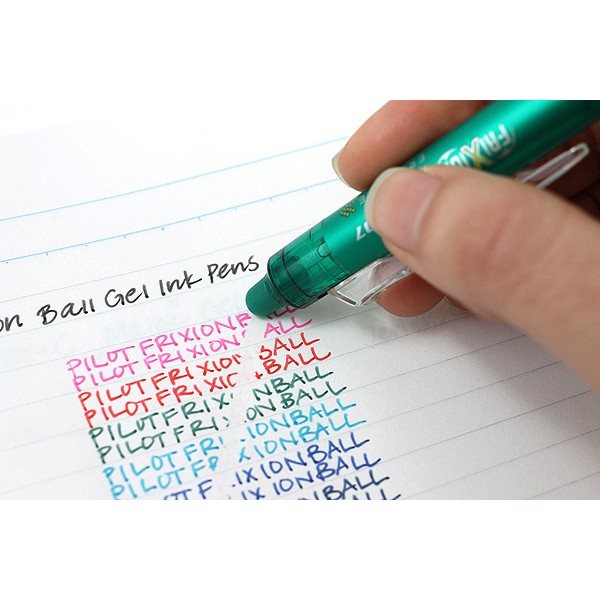 FRIXION
07
on Ball Gel Ink Pens
PILOT FRIXION BALL
PILOT FRIXION BALL
PILOT FRIXION BALL
PILOT FRIXION BALL
PILOT FRIXION BALL
PILOT FRIXION BALL
PILOT FRIXIONBALL
PILOT FRIXIONBALL
PILOT FRIXIONBALL
IXIONBALL
BALL